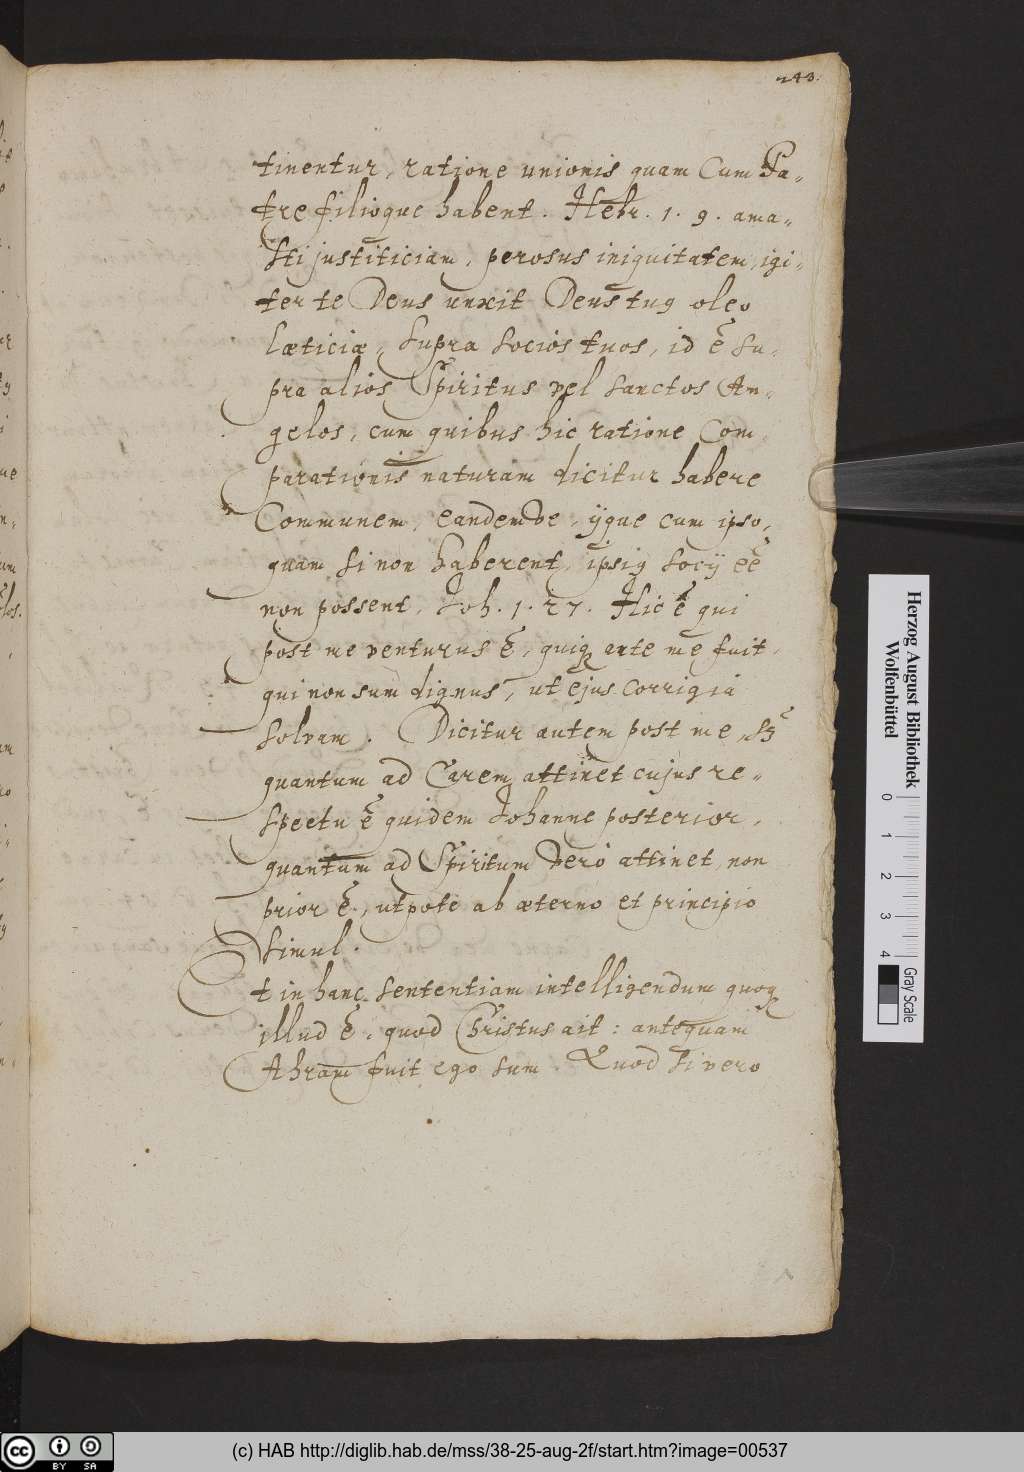 243.
tinentur, ratione unionis quam Cum Pa-
tre filioque habent. Hebr. 1. 9. ama-
sti justiticiam, perosus iniquitatem, igi-
ter te Deus unxit Deus tuꝰ oleo
lætitiæ, supra socios tuos, id ẽ su-
pra alios Spiritus vel sanctos An-
gelos, cum quibus hic ratione Com
parationis naturam dicitur habere
Communem, eandemve, ijque cum ipso,
quam si non haberent, ipsiꝰ socij eẽ
non possent, Joh. 1. 27. Hic ẽ qui
post me venturus ẽ, quiq ante me fuit,
qui non sum dignus, ut ejus corrigia
solvam. Dicitur autem post me, sꝫ
quantum ad Carem attinet cujus re-
spectu ẽ quidem Johanne posterior,
quantum ad Spiritum vero attinet, non
prior ẽ, utpote ab æterno et principio
simul.
Et in hanc sententiam intelligendum quoq
illud ẽ, quod Christus ait: antequam
Abram fuit ego sum. Quod si vero
Herzog August Bibliothek
Wolfenbüttel
0 1 2 3 4
Gray Scale
cc BY SA
(c) HAB http://diglib.hab.de/mss/38-25-aug-2f/start.htm?image=00537